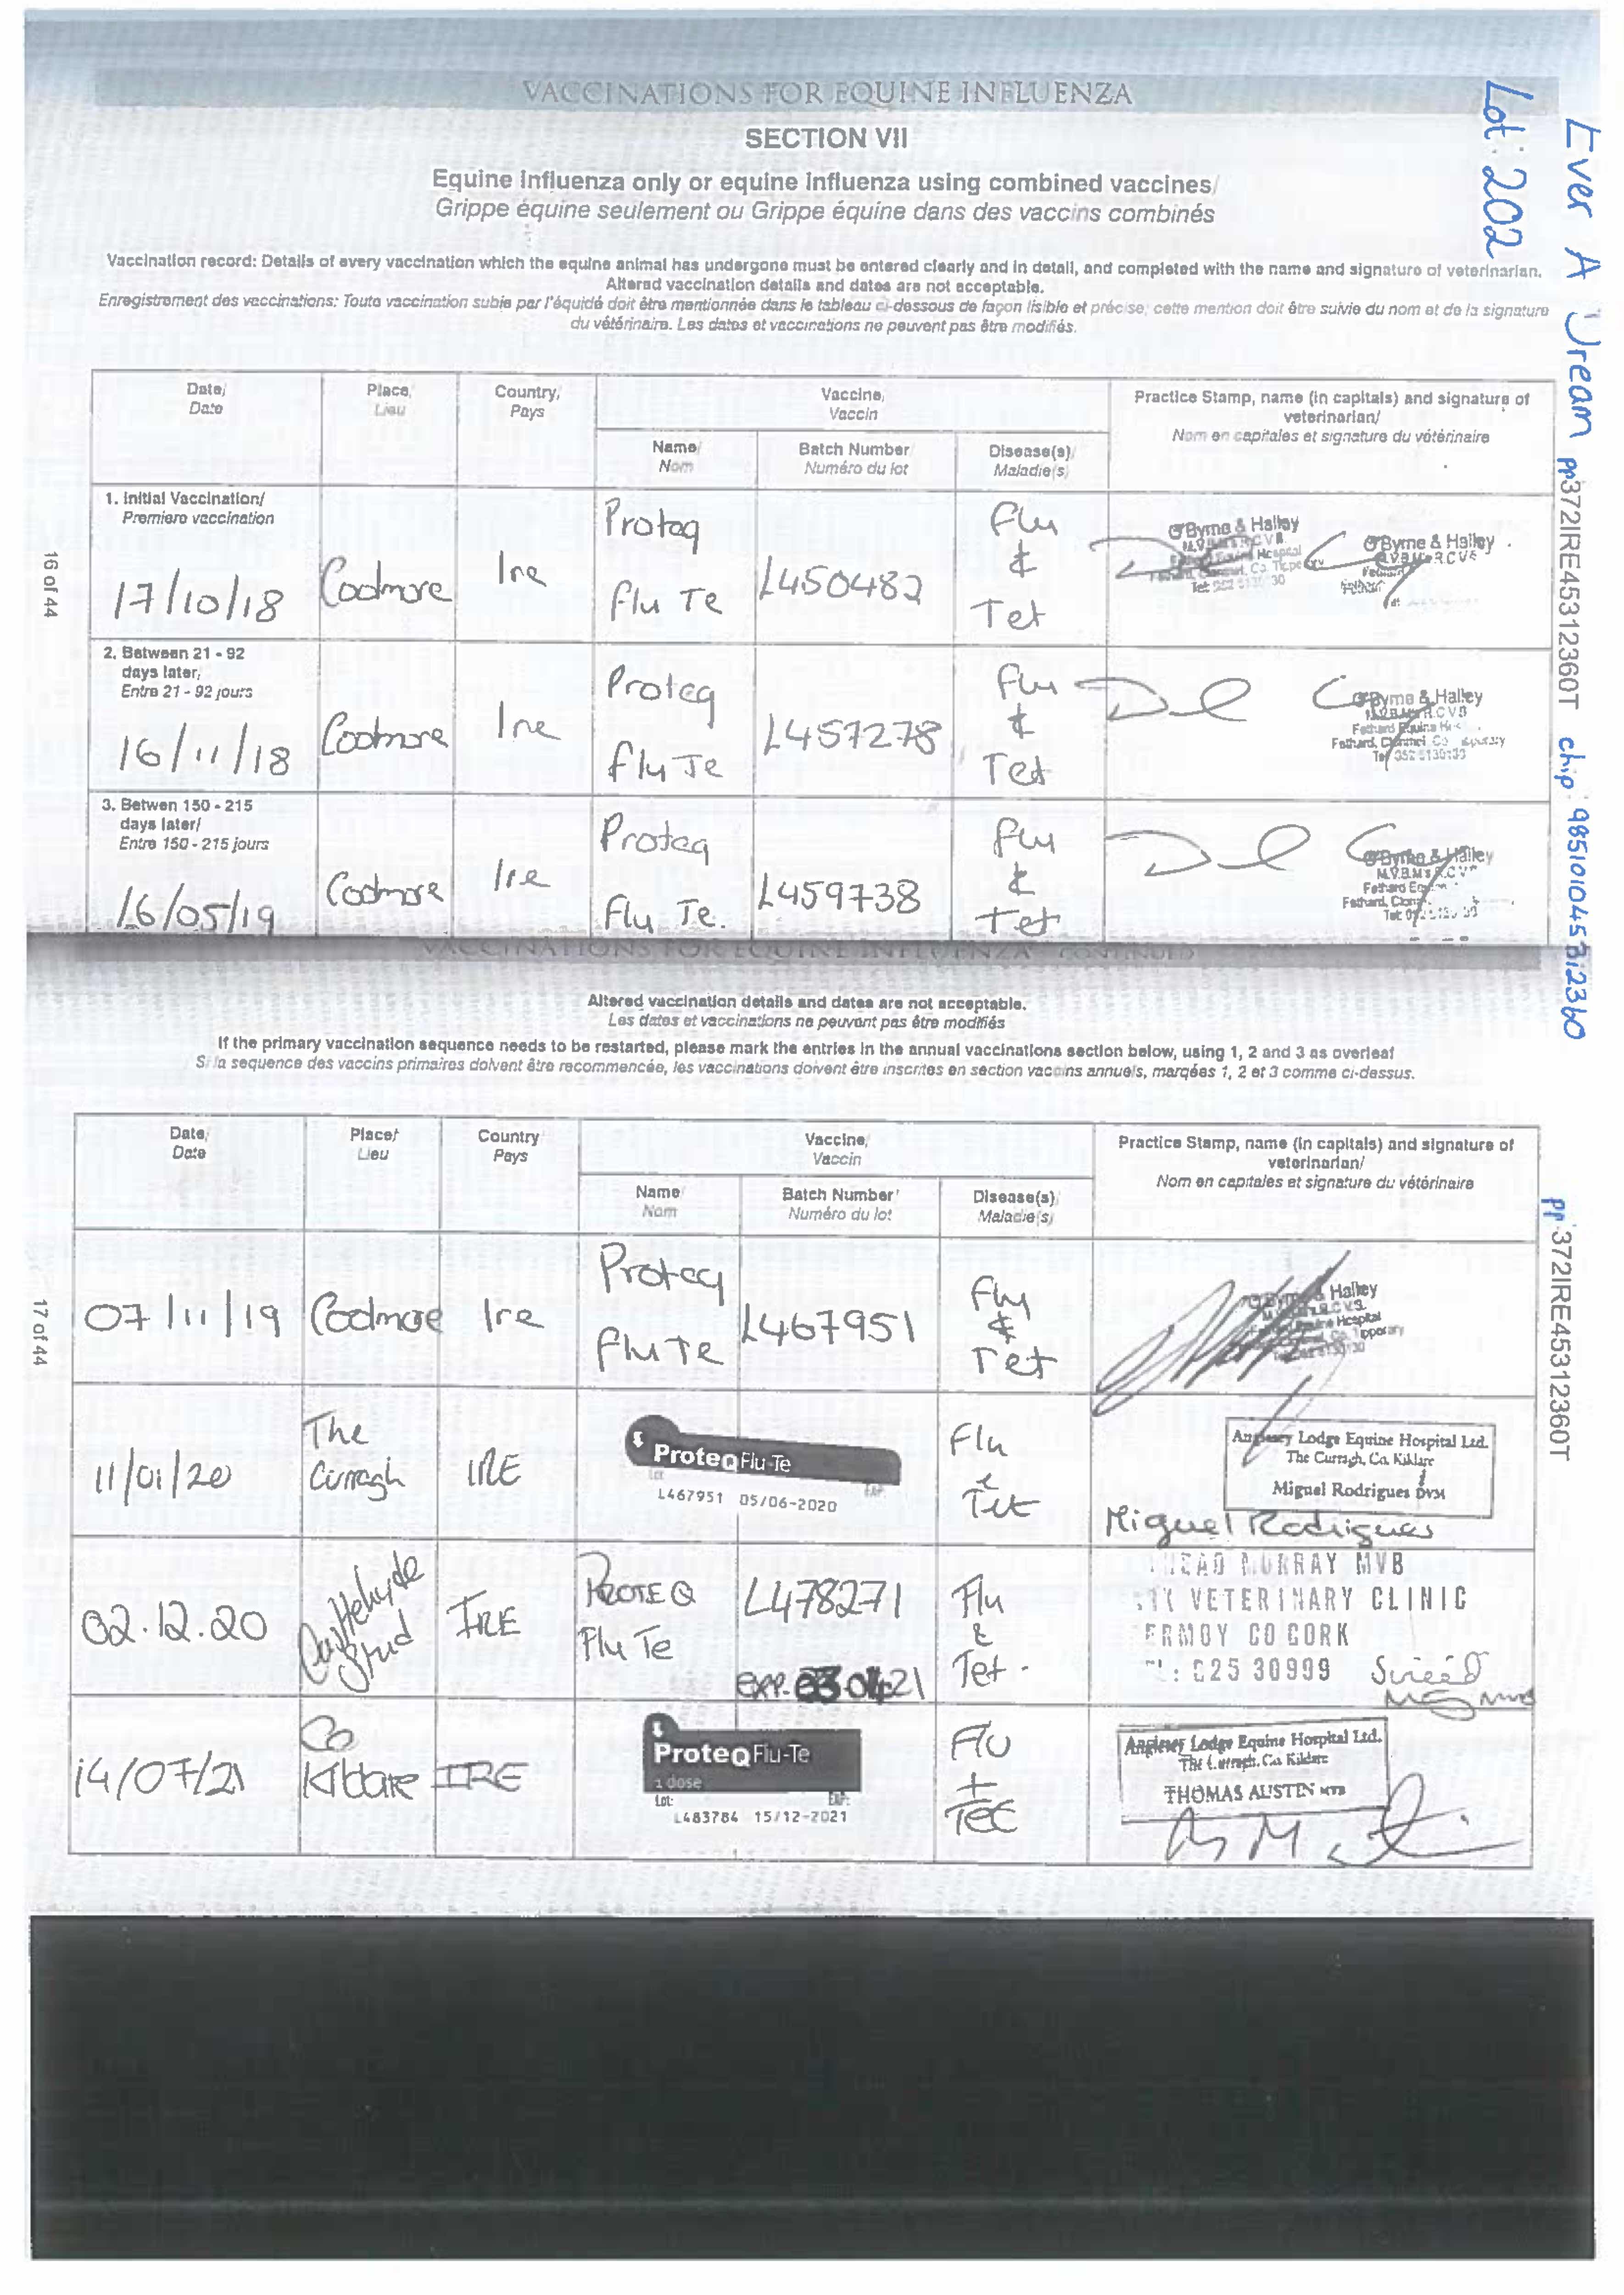 VACCINATIONS FOR EQUINE INFLUENZA
SECTION VII
Equine Influenza only or equine influenza using combined vaccines/
Grippe équine seulement ou Grippe équine dans des vaccins combinés
Vaccination record: Details of every vaccination which the equine animal has undergone must be entered clearly and in detail, and completed with the name and signature of veterinarian.
Altered vaccination details and dates are not acceptable.
Enregistrement des vaccinations: Toute vaccination subie par l'équidé doit être mentionnée dans le tableau ci-dessous de façon lisible et précise; cette mention doit être suivie du nom et de la signature
du vétérinaire. Les dates et vaccinations ne peuvent pas être modifiés.
Lot: 202
Ever A Dream pp372IRE45312360T chip: 985101045312360
16 of 44
Date/ Place/ Country/ Vaccine/ Practice Stamp, name (in capitals) and signature of
Date Lieu Pays Vaccin veterinarian/
Nom en capitales et signature du vétérinaire
Name/ Batch Number Disease(s)/
Nom Numéro du lot Maladie(s)
1. Initial Vaccination/
Premiere vaccination
17/10/18 Coolmore Ire Proteq Flu Te L450482 Flu & Tet
O'Byrne & Halley
O'Byrne & Halley
2. Between 21 - 92
days later/
Entre 21 - 92 jours
16/11/18 Coolmore Ire Proteq Flu Te L457278 Flu & Tet
O'Byrne & Halley
3. Betwen 150 - 215
days later/
Entre 150 - 215 jours
16/05/19 Coolmore Ire Proteq Flu Te. L459738 Flu & Tet
O'Byrne & Halley
VACCINATIONS FOR EQUINE INFLUENZA CONTINUED
Altered vaccination details and dates are not acceptable.
Les dates et vaccinations ne peuvent pas être modifiés
If the primary vaccination sequence needs to be restarted, please mark the entries in the annual vaccinations section below, using 1, 2 and 3 as overleaf
Si la sequence des vaccins primaires doivent être recommencée, les vaccinations doivent être inscrites en section vaccins annuels, marqées 1, 2 et 3 comme ci-dessus.
pp: 372IRE45312360T
17 of 44
Date/ Place/ Country Vaccine/ Practice Stamp, name (in capitals) and signature of
Date Lieu Pays Vaccin veterinarian/
Nom en capitales et signature du vétérinaire
Name/ Batch Number/ Disease(s)/
Nom Numéro du lot Maladie(s)
07/11/19 Coolmore Ire Proteq Flu Te L467951 Flu & Tet
Halley
11/01/20 The Curragh IRE ProteqFlu-Te Flu & Tet
L467951 05/06-2020
Anglesey Lodge Equine Hospital Ltd.
The Curragh, Co. Kildare
Miguel Rodrigues DVM
Miguel Rodrigues
02.12.20 Castlehyde Stud IRE PROTEQ Flu Te L478271 Flu & Tet.
MURRAY MVB
VETERINARY CLINIC
FERMOY CO CORK
025 30999
14/07/21 Co Kildare IRE ProteqFlu-Te Flu + Tec
1 dose
Lot: EXP:
L483784 15/12-2021
Anglesey Lodge Equine Hospital Ltd.
The Curragh, Co. Kildare
THOMAS AUSTEN MVB